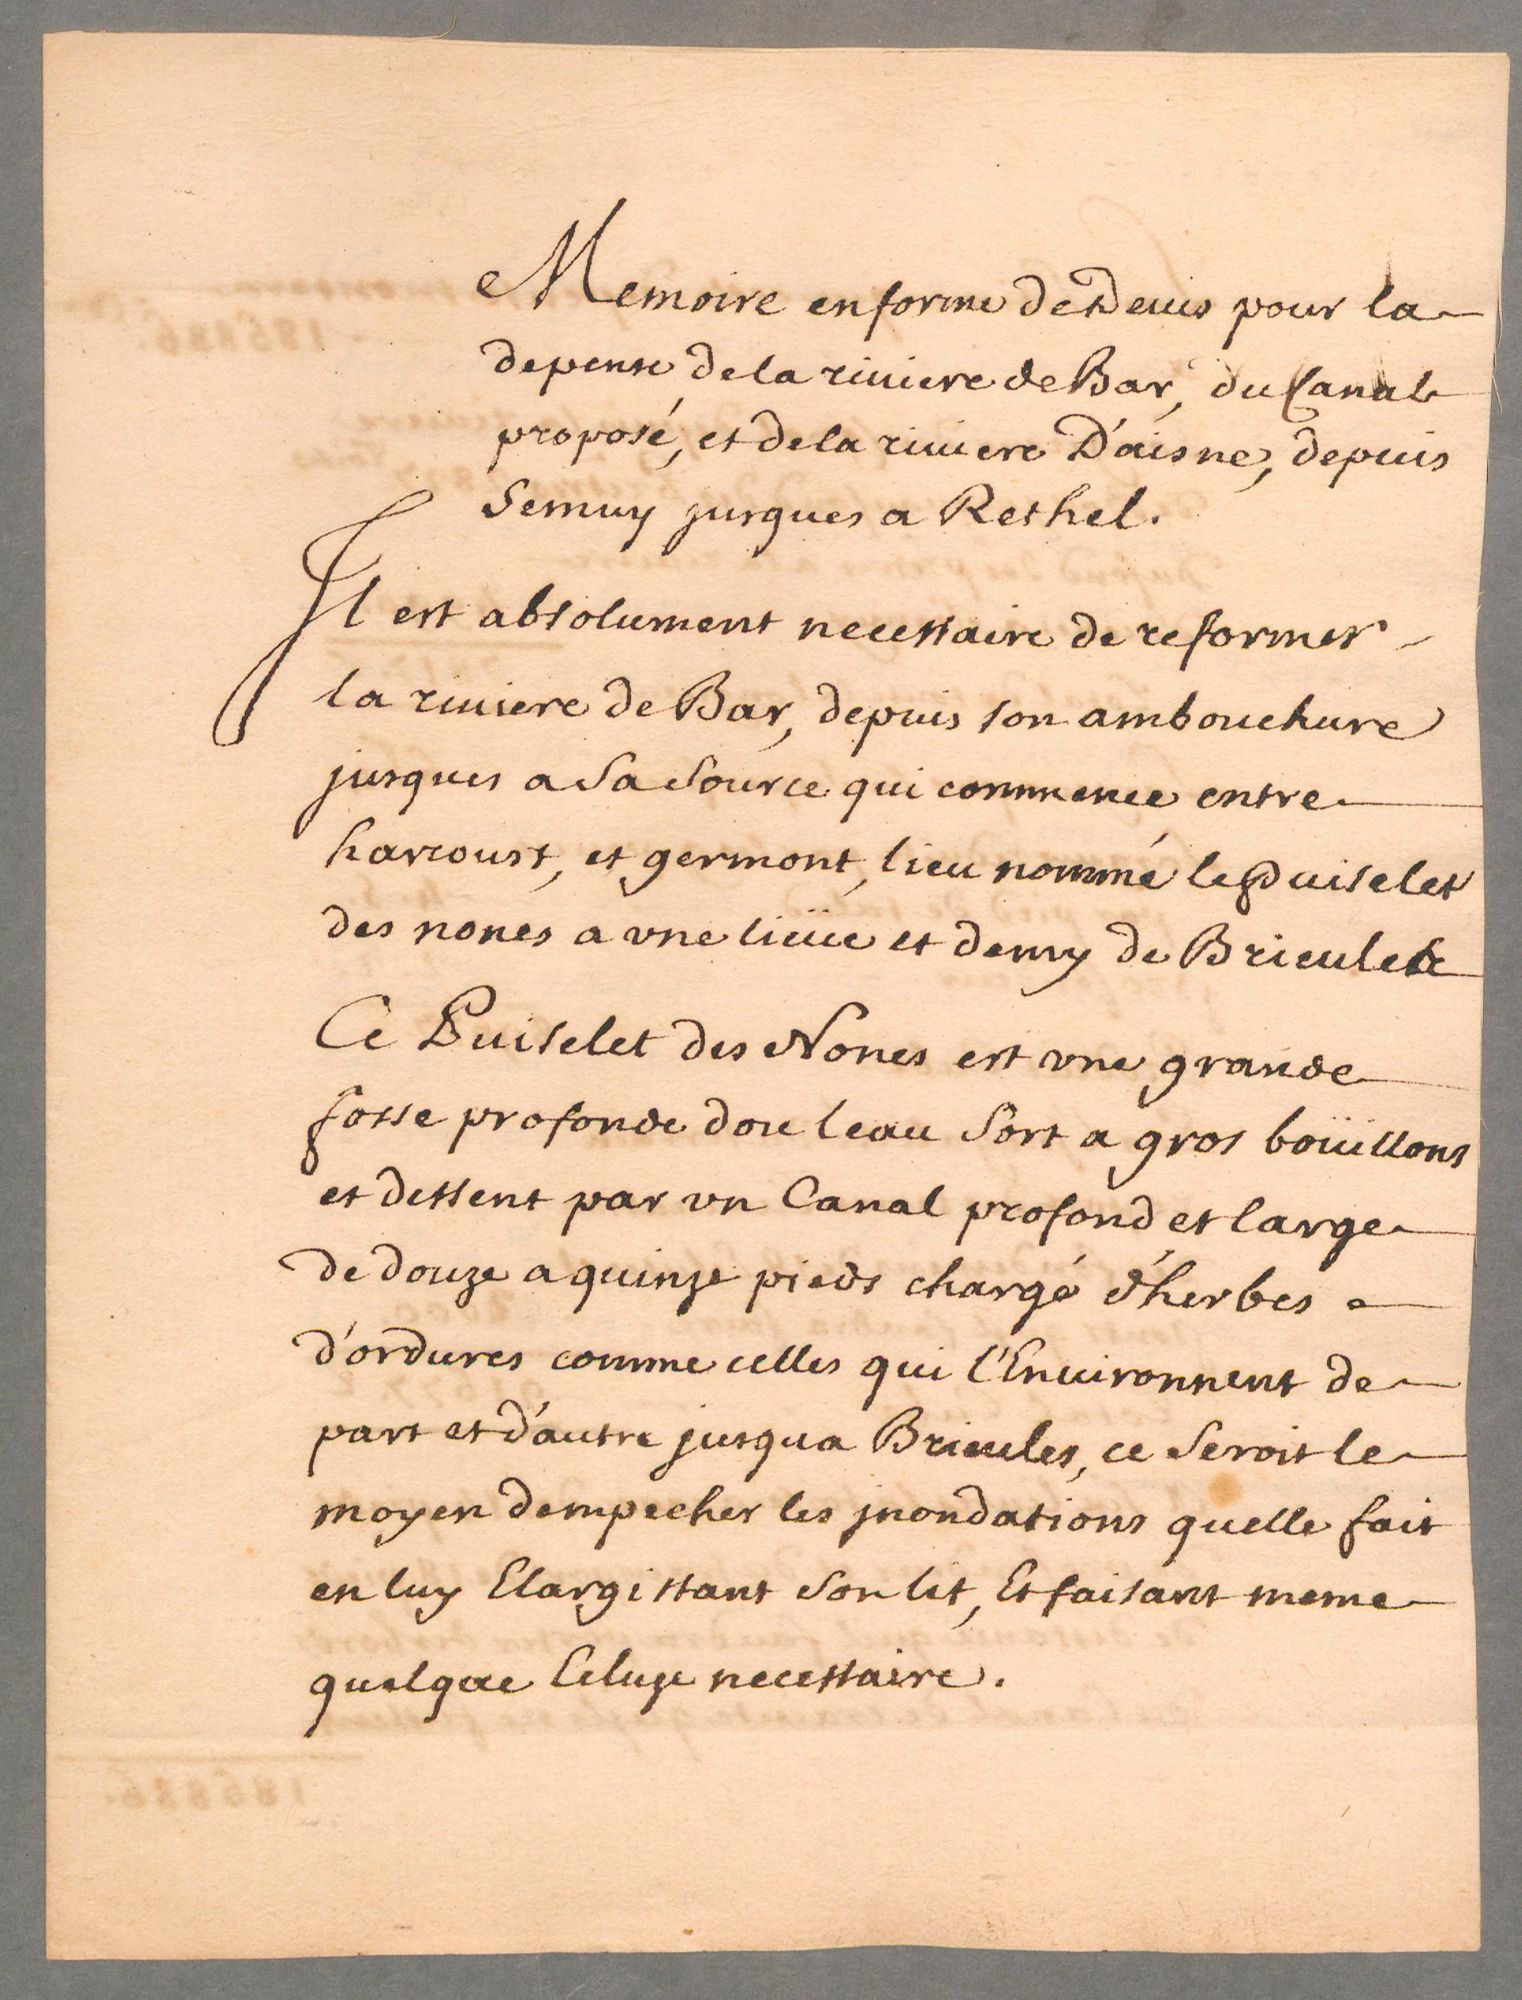 Memoire en forme de Devis pour la
depense de la riviere de Bar, du Canal
proposé, et de la riviere D'aisne, depuis
Semuy jusques a Rethel.
Il est absolument necessaire de reformer
la riviere de Bar, depuis son ambouchure
jusques a Sa Source qui commence entre
harcourt, et germont, lieu nommé le Puiselet
des nones a vne lieüe et demy de Brieules
Ce Puiselet des Nones est vne grande
fosse profonde dou leau Sort a gros boüillons
et dessent par vn Canal profond et large
de douze a quinze pieds chargé d'herbes
d'ordures comme celles qui l'Enuironnent de
part et d'autre jusqua Brieules, ce Seroit le
moyen dempecher les jnondations quelle fait
en luy Elargissant Son lit, Et faisant meme
quelque Ecluze necessaire.